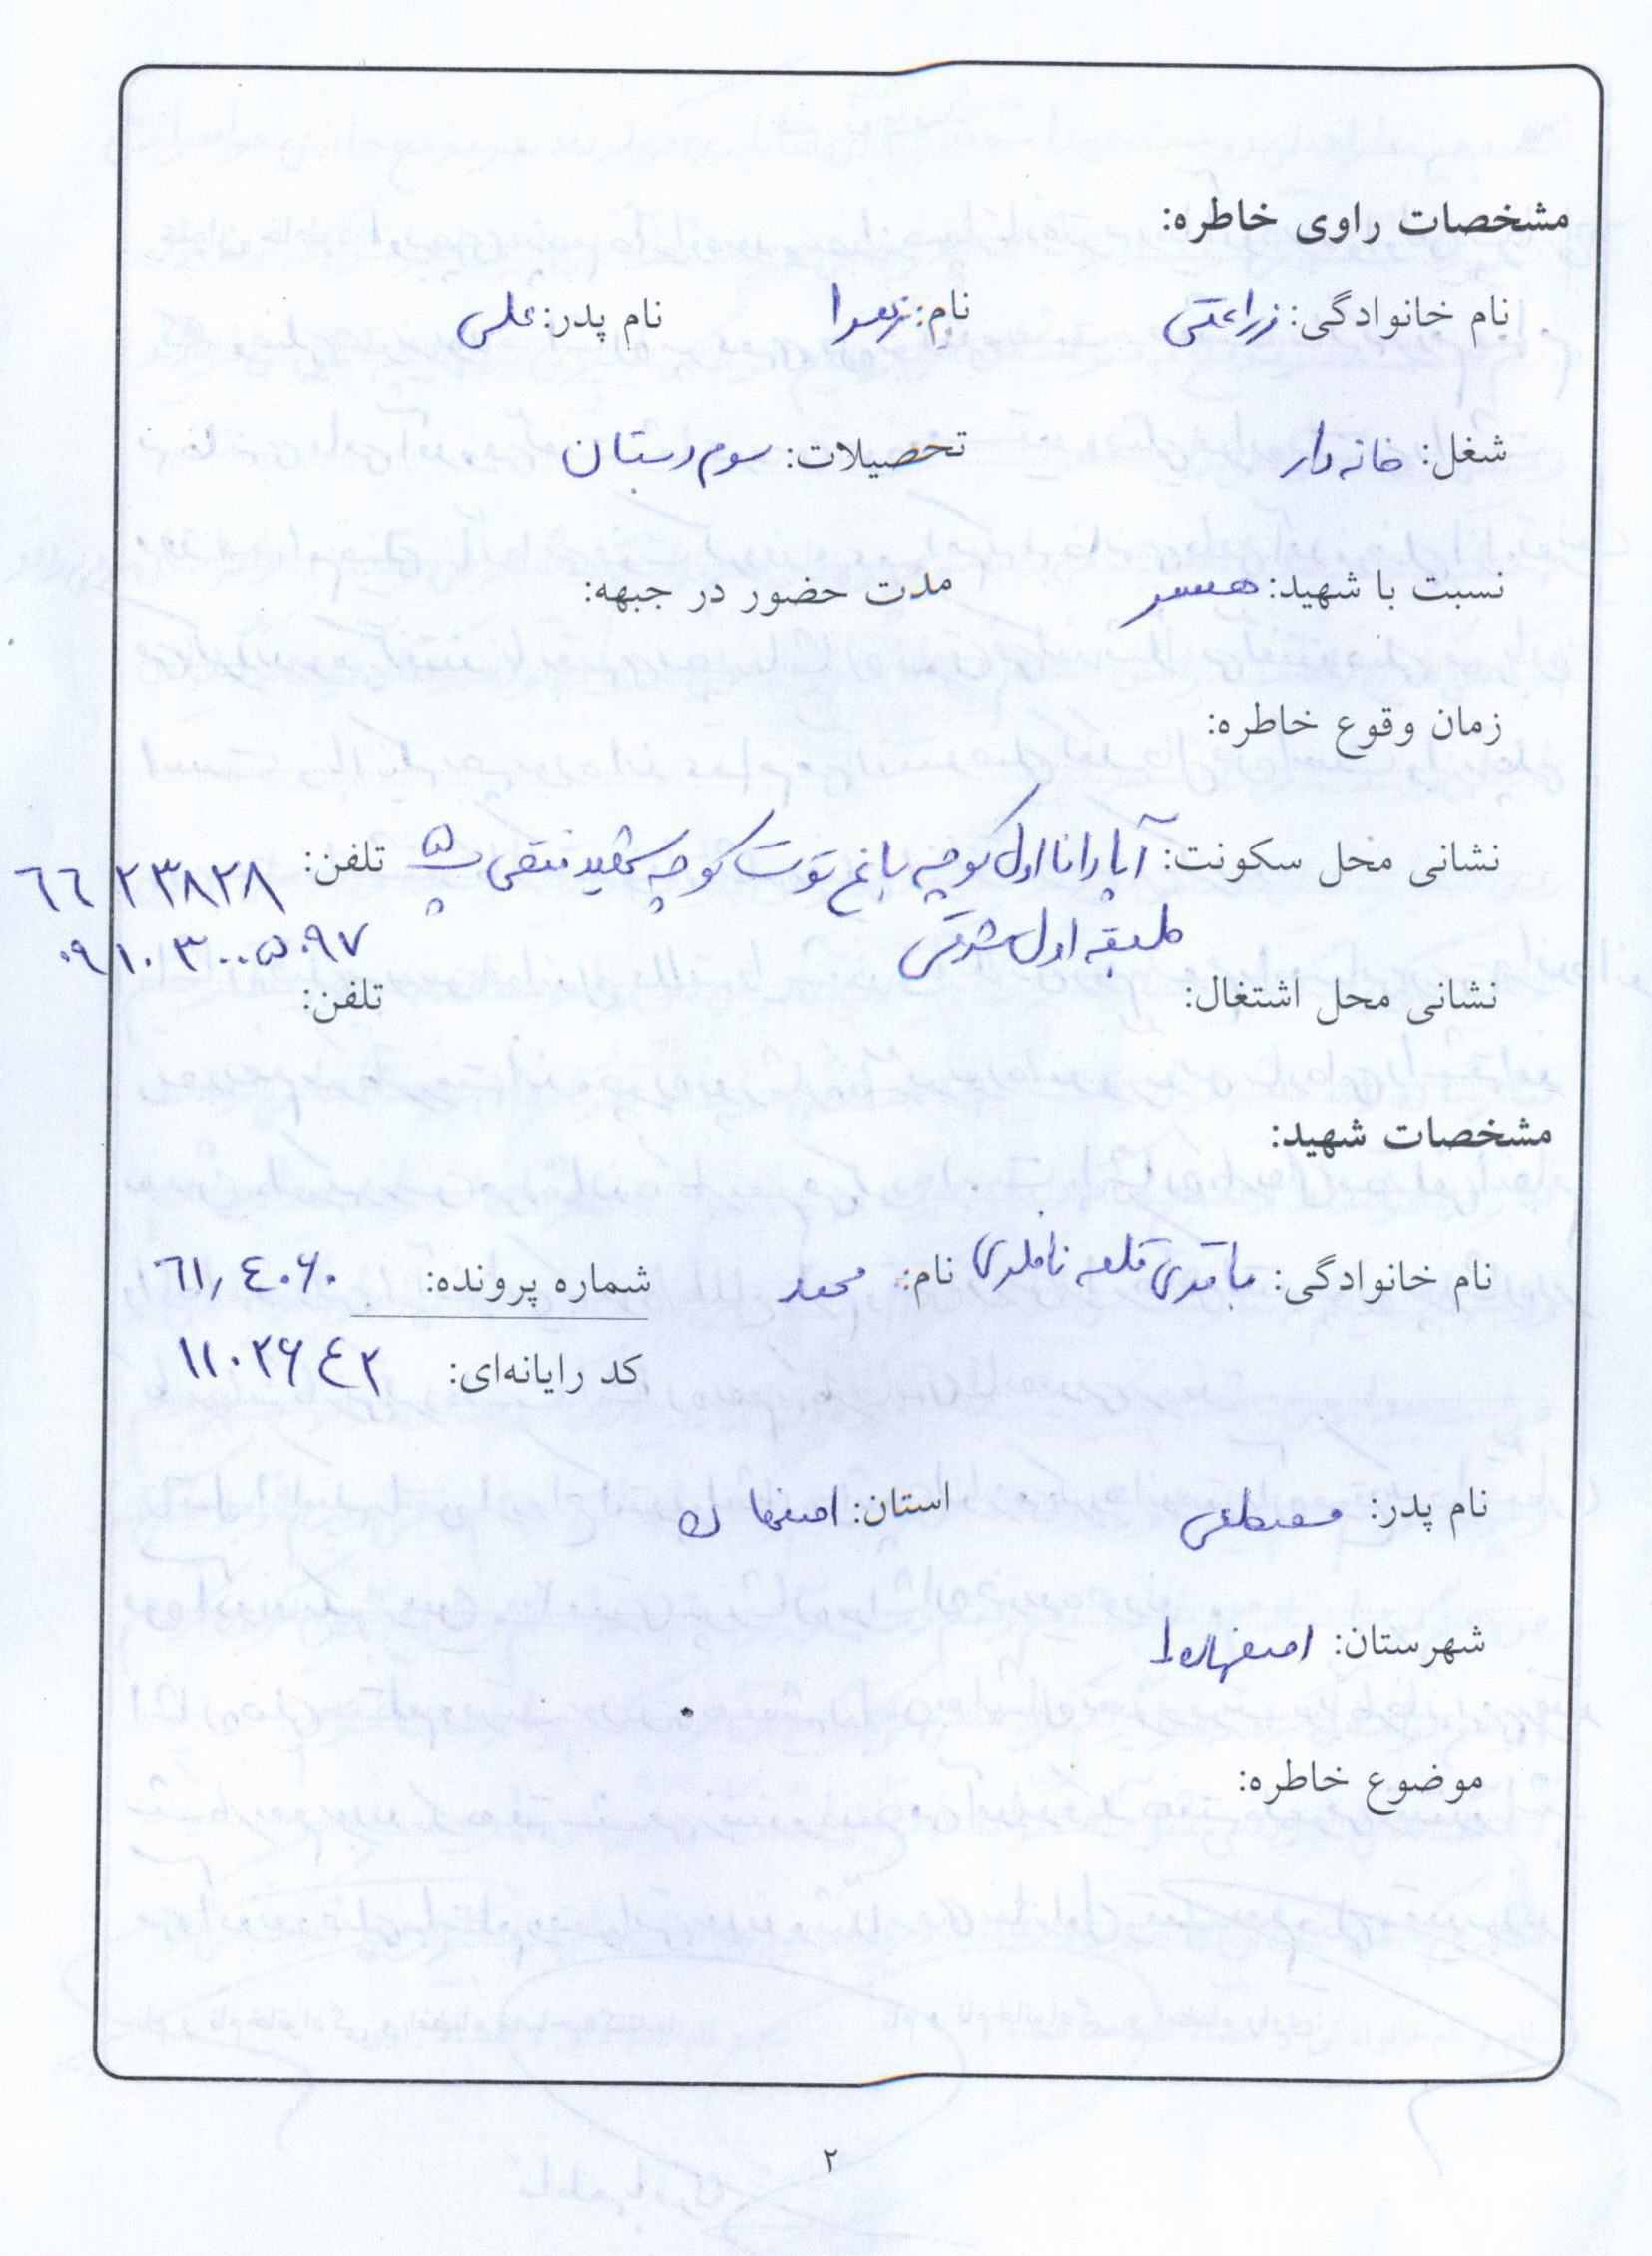 مشخصات راوی خاطره:
نام خانوادگی: زراعتی نام: زهرا نام پدر: علی
شغل: خانه دار تحصیلات: سوم دبستان
نسبت با شهید: همسر مدت حضور در جبهه:
زمان وقوع خاطره:
نشانی محل سکونت: آپادانا اول کوچه باغ توت کوچه شهید متقی پ ۵ تلفن: ٦٦٢٣٨٢٨
طبقه اول شرقی ٠٩١٠٣٠٠٥٠٩٧
نشانی محل اشتغال: تلفن:
مشخصات شهید:
نام خانوادگی: باقری قلعه نام: محمد شماره پرونده: ٦١٫٤٠۶٠
کد رایانه‌ای: ١١٠٢۶٤٢
نام پدر: مصطفی استان: اصفهان
شهرستان: اصفهان
موضوع خاطره:
٢